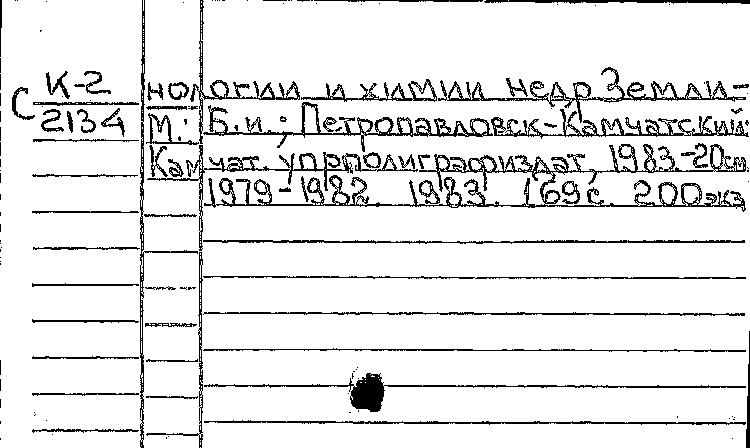 С К-2
2134
нологии и химии недр Земли-
М.: Б.и.; Петропавловск-Камчатский:
Камчат. упрполиграфиздат, 1983.-20см
1979-1982. 1983. 169с. 200экз